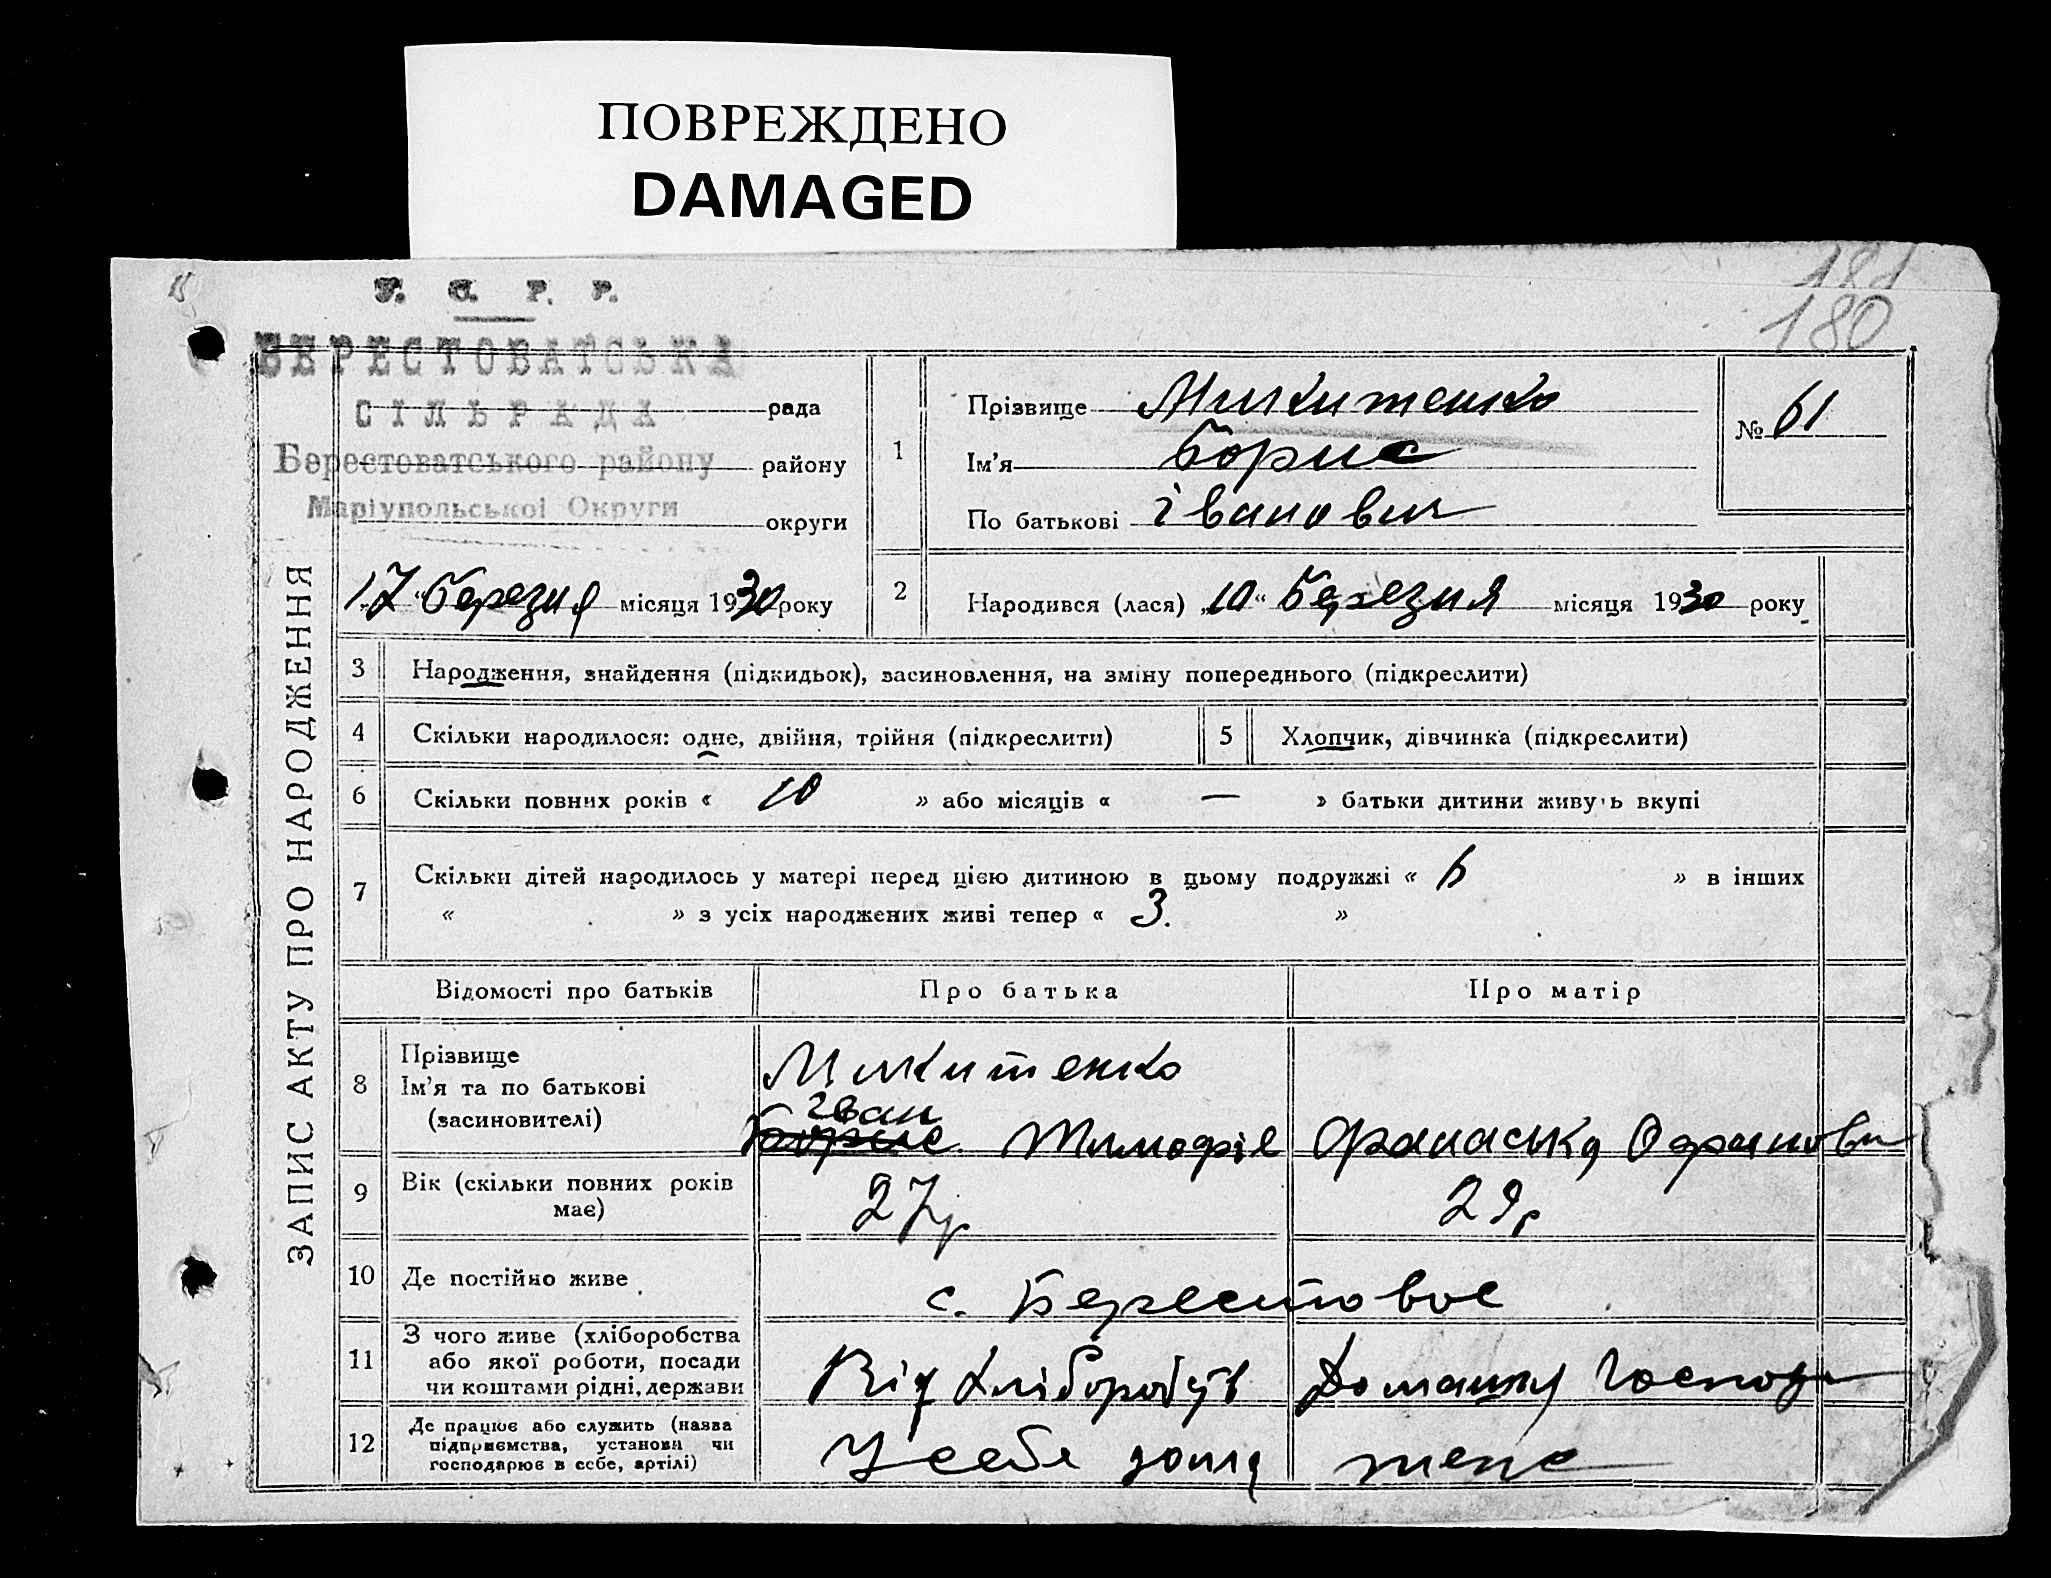 ПОВРЕЖДЕНО
DAMAGED
181
180
У. С. Р. Р.
БЕРЕСТОВАТСЬКА
СІЛЬРАДА рада
Берестоватського району району
Маріупольської Округи округи
"17" Березня місяця 1930 року
ЗАПИС АКТУ ПРО НАРОДЖЕННЯ
1 Прізвище Микитенко
Ім'я Борис
По батькові Іванович
№ 61
2 Народився (лася) "10" Березня місяця 1930 року
3 Народження, знайдення (підкидьок), засиновлення, на зміну попереднього (підкреслити)
4 Скільки народилося: одне, двійня, трійня (підкреслити) 5 Хлопчик, дівчинка (підкреслити)
6 Скільки повних років « 10 » або місяців « — » батьки дитини живуть вкупі
7 Скільки дітей народилось у матері перед цією дитиною в цьому подружжі « » в інших
« » з усіх народжених живі тепер « 3. »
Відомості про батьків Про батька Про матір
8 Прізвище
Ім'я та по батькові
(засиновителі)
Микитенко
Іван
Борис Тимофіе Фанаська
9 Вік (скільки повних років
має)
27 р 29 р
10 Де постійно живе с. Берестовое
11 З чого живе (хліборобства
або якої роботи, посади
чи коштами рідні, держави
Від Хліборобств Домашн Господ
12 Де працює або служить (назва
підприємства, установи чи
господарює в себе, артілі)
У себе дома